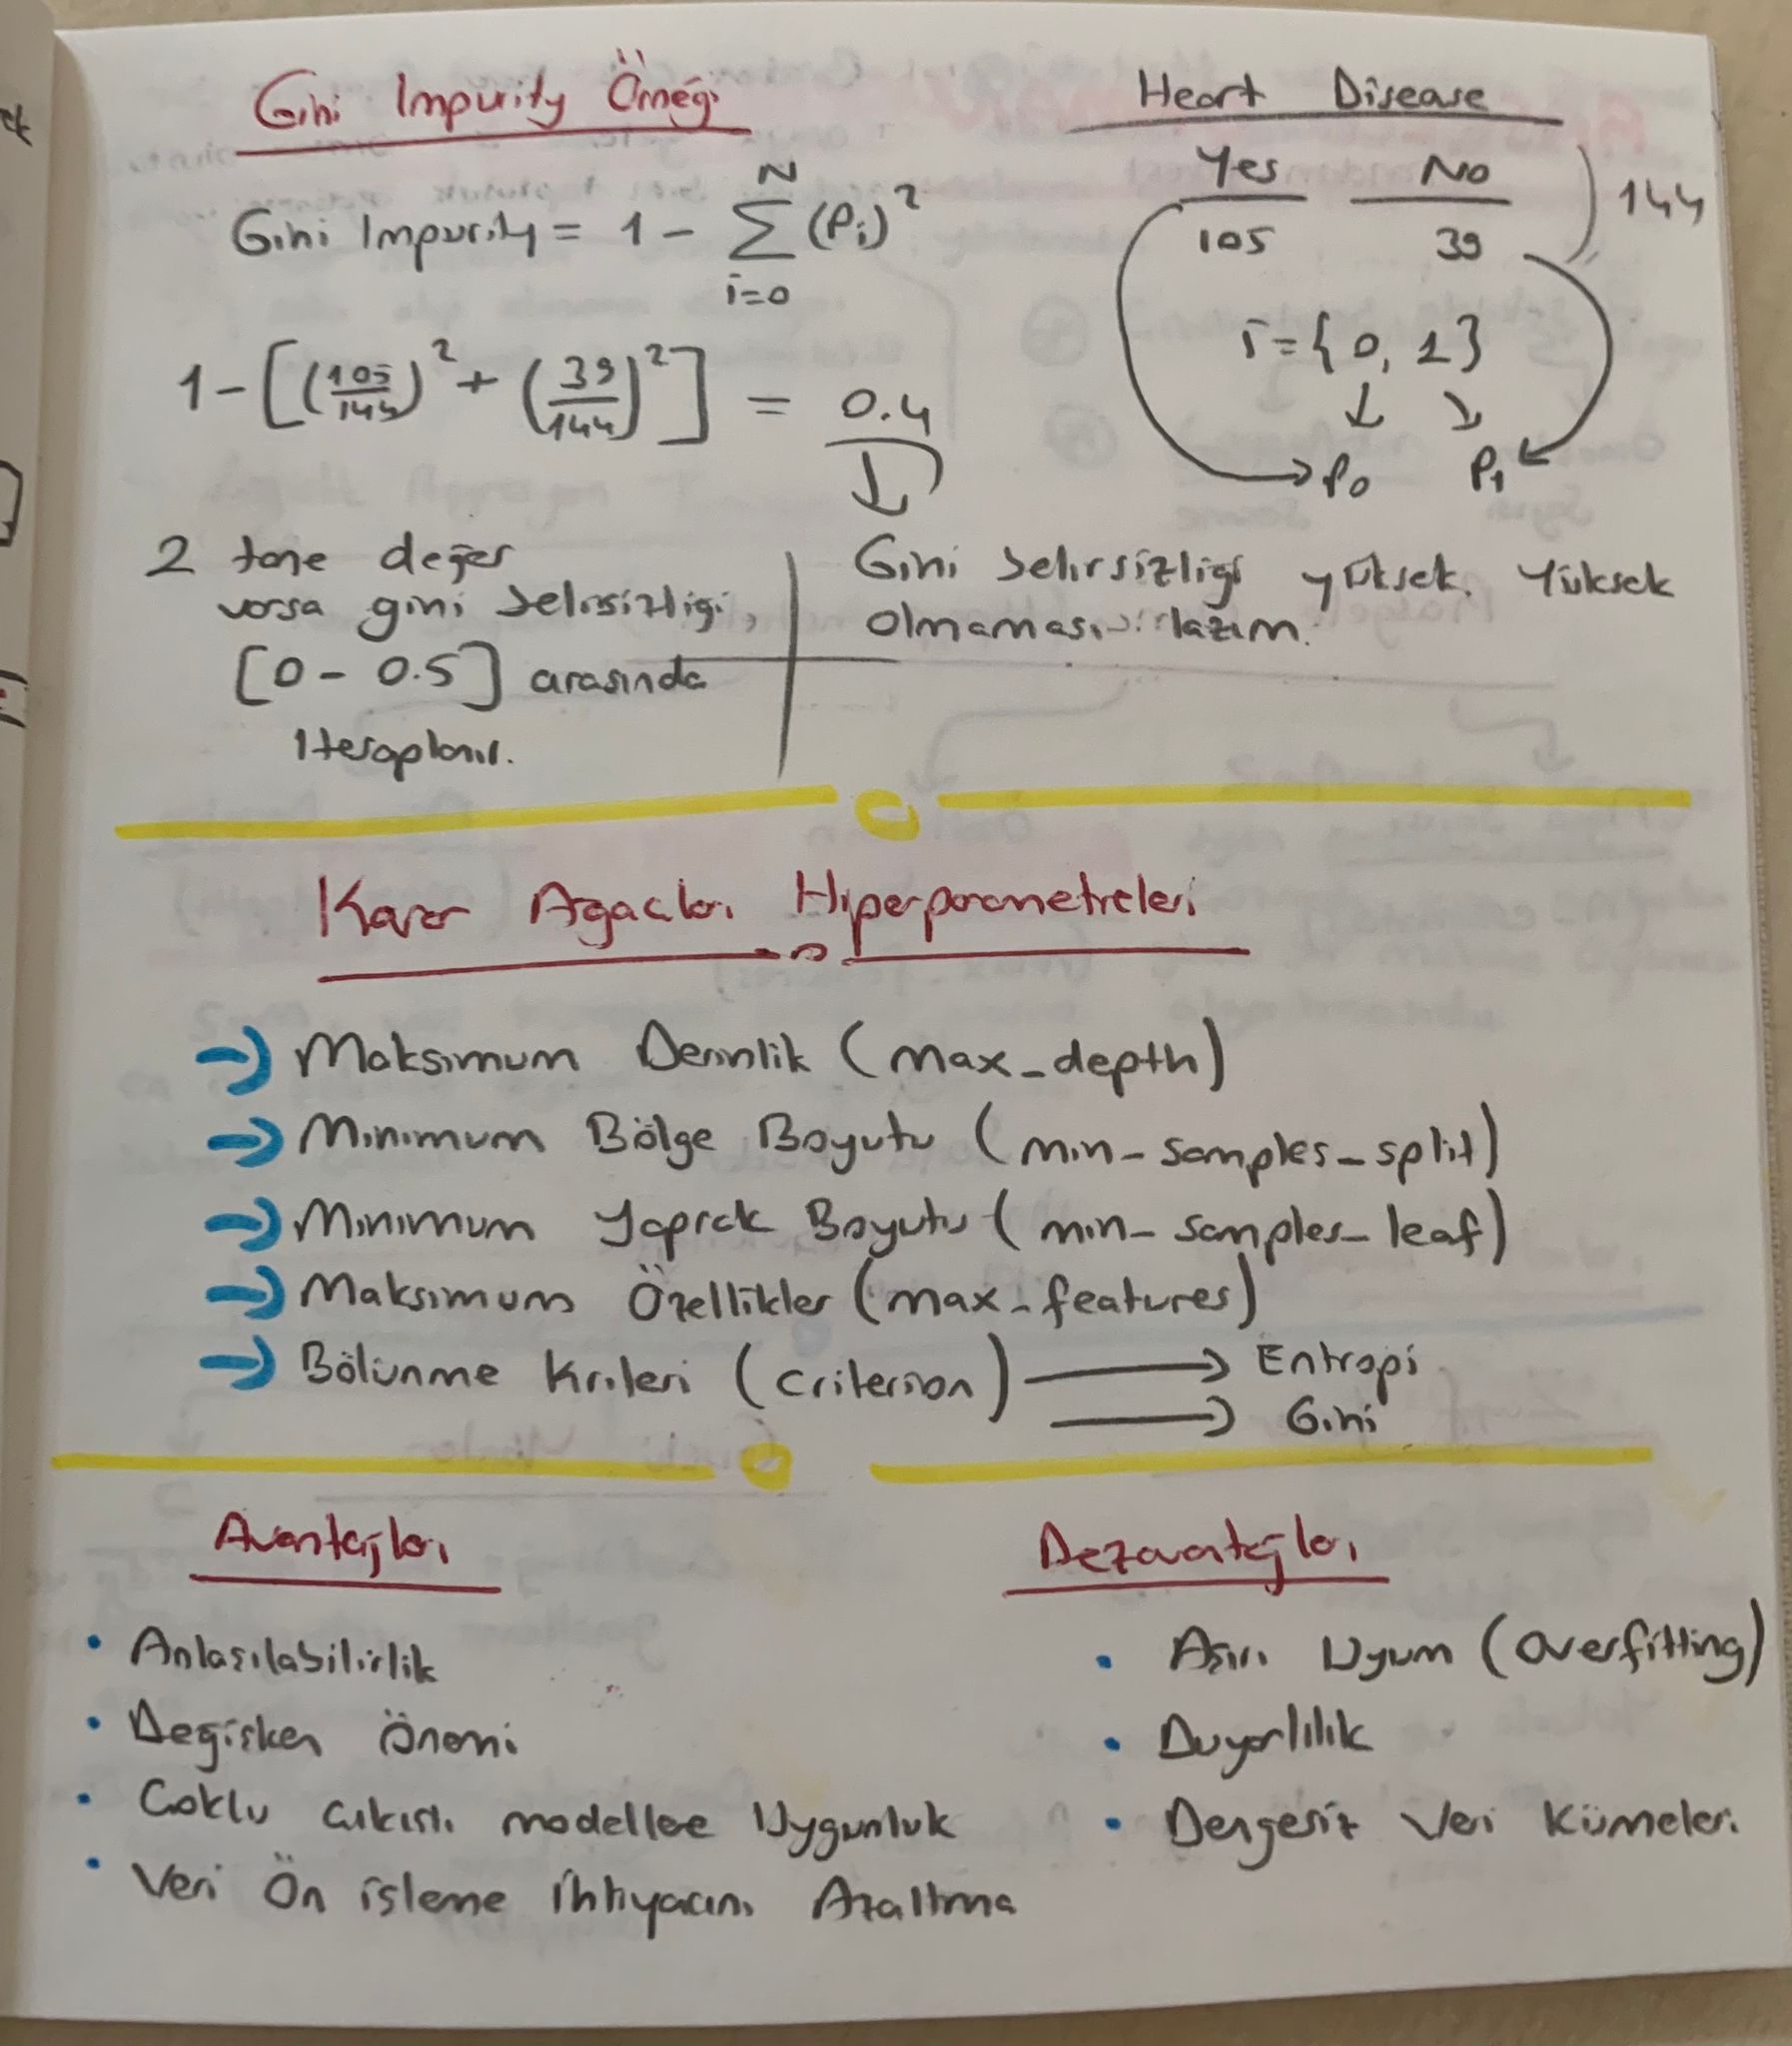 Gini Impurity Örneği
Gini Impurity = 1 - N∑i=0 (Pi)²
1 - [(105/144)² + (39/144)²] = 0.4
2 tane değer
varsa gini belirsizliği,
[0 - 0.5] arasında
Hesaplanır.
Heart Disease
Yes No
105 39
144
i = {0, 1}
P0 P1
Gini belirsizliği yüksek. Yüksek
olmaması lazım.
Karar Ağaçları Hiperparametreleri
Maksimum Derinlik (max_depth)
Minimum Bölge Boyutu (min_samples_split)
Minimum Yaprak Boyutu (min_samples_leaf)
Maksimum Özellikler (max_features)
Bölünme Kriteri (criterion) → Entropi
→ Gini
Avantajları
• Anlaşılabilirlik
• Değişken Önemi
• Çoklu çıkışlı modellere Uygunluk
• Veri Ön işleme ihtiyacını Azaltma
Dezavantajları
• Aşırı Uyum (Overfitting)
• Duyarlılık
• Dengesiz Veri Kümeleri